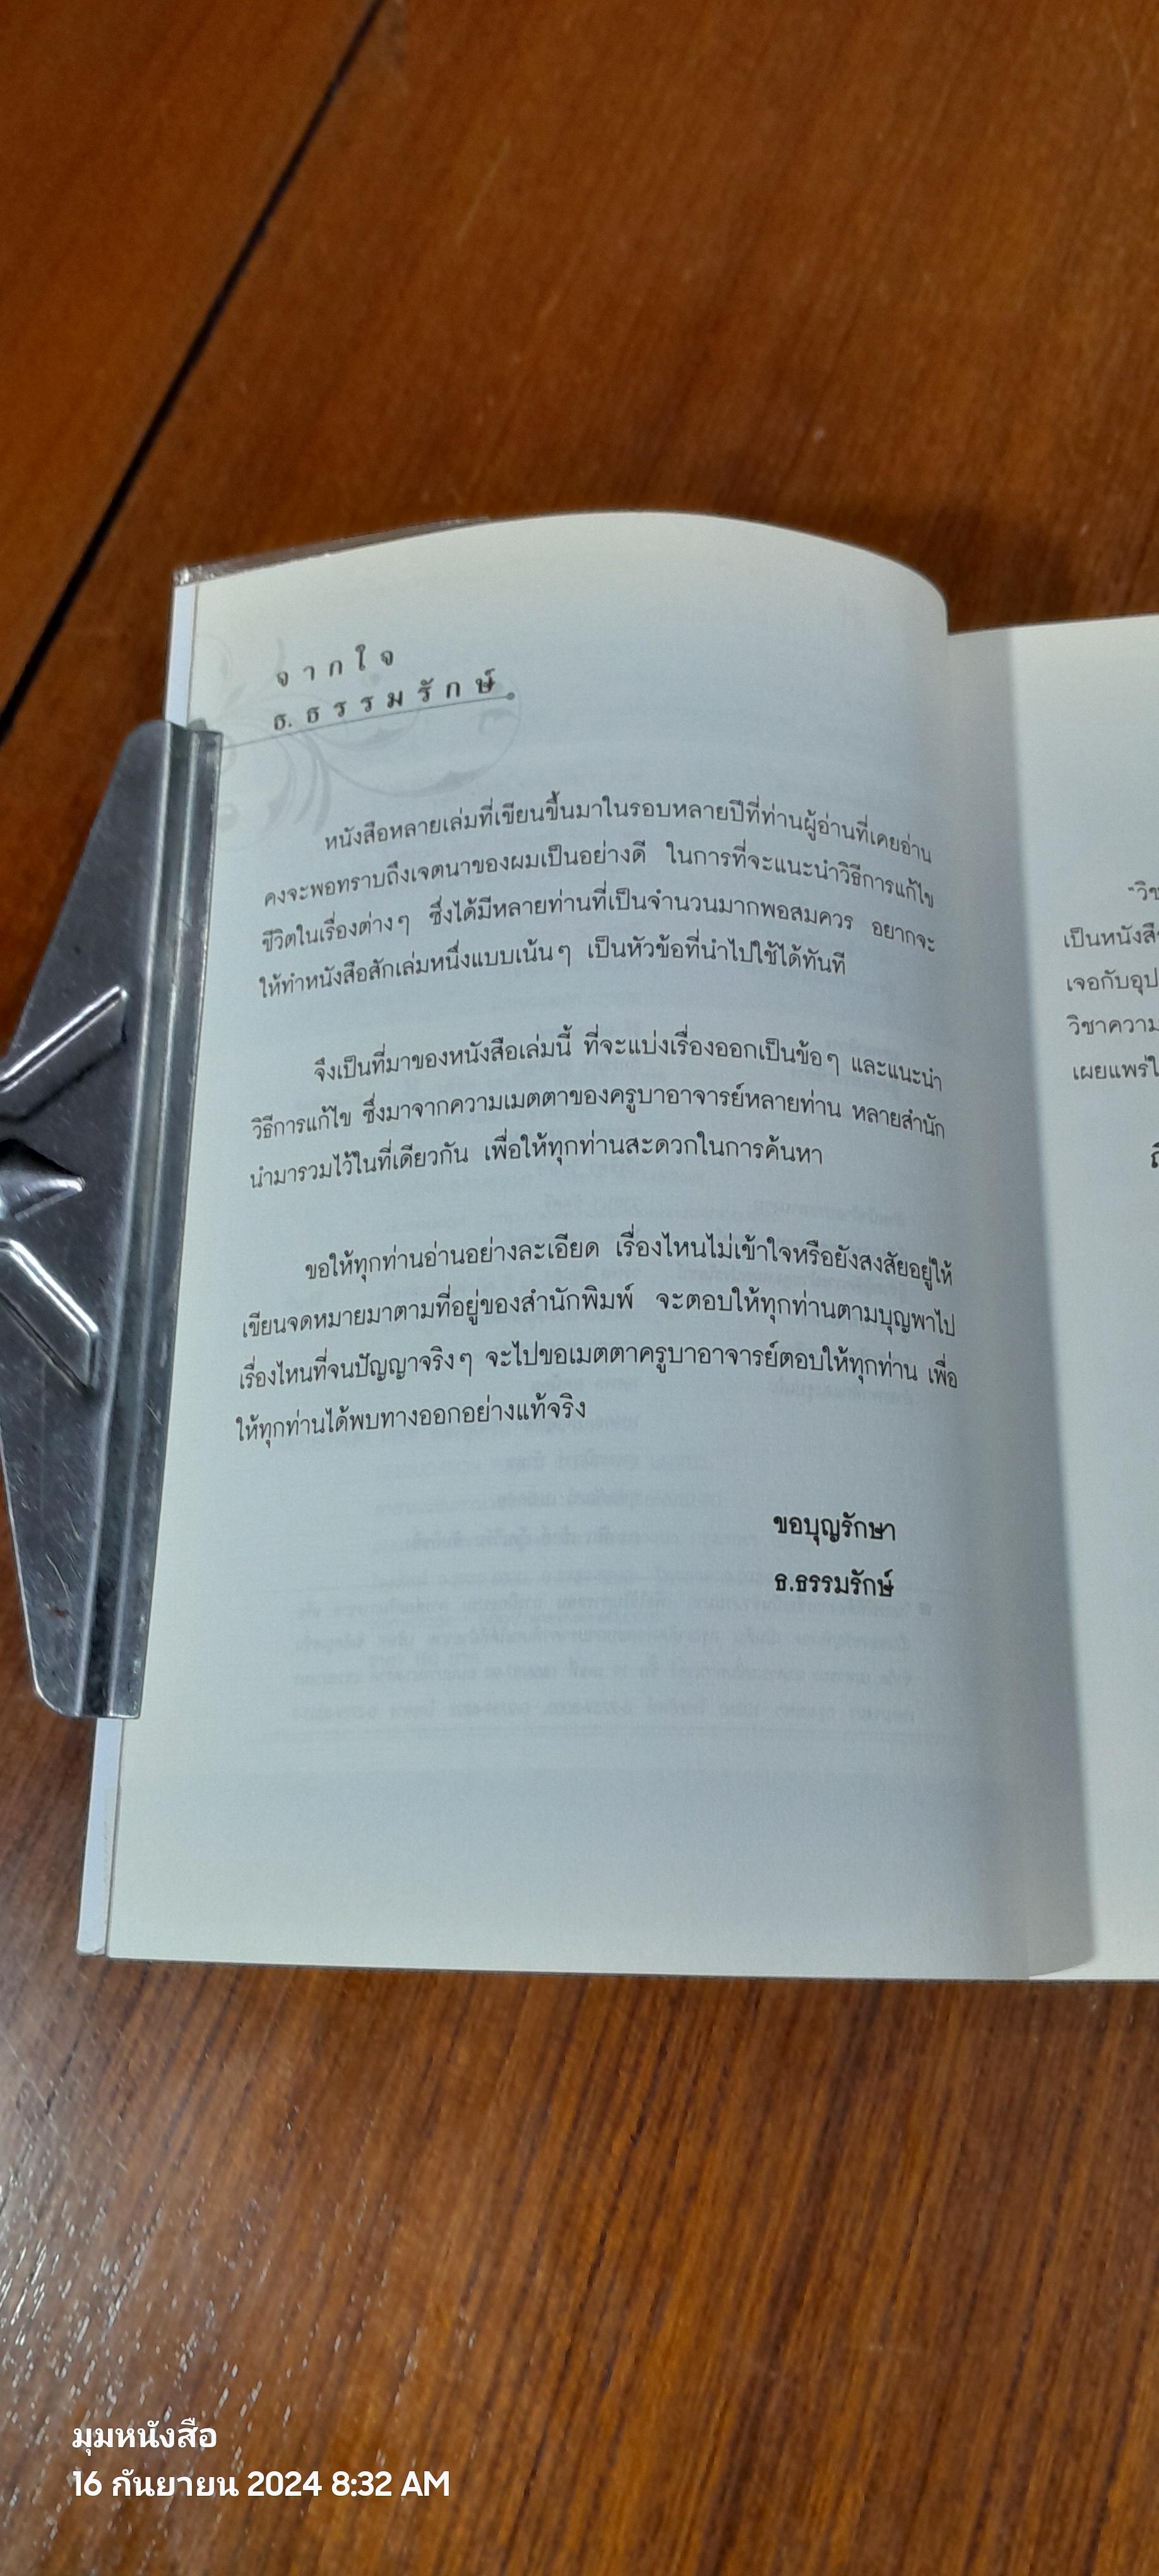 จากใจ
ธ. ธรรมรักษ์
หนังสือหลายเล่มที่เขียนขึ้นมาในรอบหลายปีที่ท่านผู้อ่านที่เคยอ่าน
คงจะพอทราบถึงเจตนาของผมเป็นอย่างดี ในการที่จะแนะนำวิธีการแก้ไข
ชีวิตในเรื่องต่างๆ ซึ่งได้มีหลายท่านที่เป็นจำนวนมากพอสมควร อยากจะ
ให้ทำหนังสือสักเล่มหนึ่งแบบเน้นๆ เป็นหัวข้อที่นำไปใช้ได้ทันที
จึงเป็นที่มาของหนังสือเล่มนี้ ที่จะแบ่งเรื่องออกเป็นข้อๆ และแนะนำ
วิธีการแก้ไข ซึ่งมาจากความเมตตาของครูบาอาจารย์หลายท่าน หลายสำนัก
นำมารวมไว้ในที่เดียวกัน เพื่อให้ทุกท่านสะดวกในการค้นหา
ขอให้ทุกท่านอ่านอย่างละเอียด เรื่องไหนไม่เข้าใจหรือยังสงสัยอยู่ให้
เขียนจดหมายมาตามที่อยู่ของสำนักพิมพ์ จะตอบให้ทุกท่านตามบุญพาไป
เรื่องไหนที่จนปัญญาจริงๆ จะไปขอเมตตาครูบาอาจารย์ตอบให้ทุกท่าน เพื่อ
ให้ทุกท่านได้พบทางออกอย่างแท้จริง
ขอบุญรักษา
ธ.ธรรมรักษ์
เป็นหนังสือ
เจอกับอุป
วิชาความ
เผยแพร่
มุมหนังสือ
16 กันยายน 2024 8:32 AM